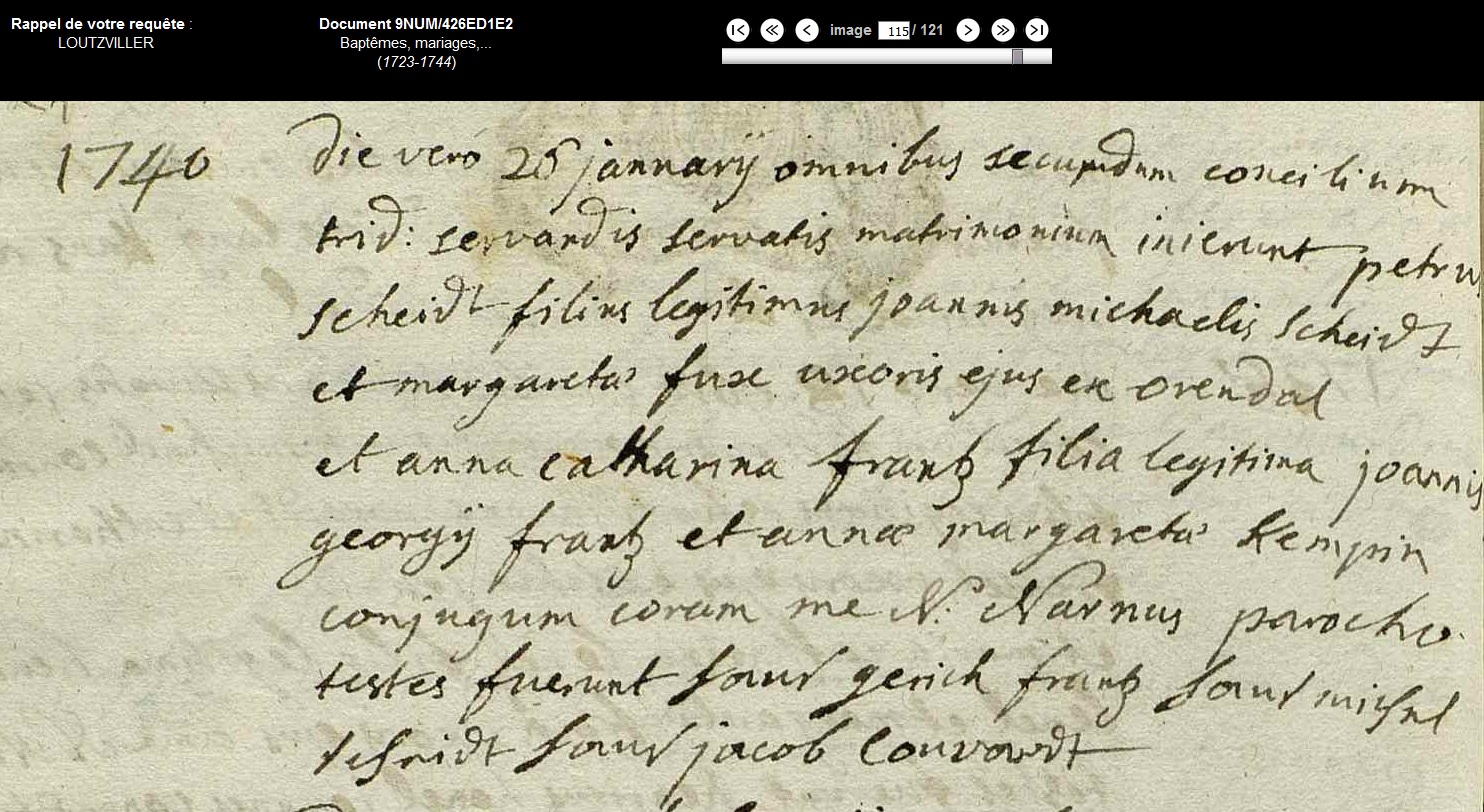 Rappel de votre requête :
LOUTZVILLER
Document 9NUM/426ED1E2
Baptêmes, mariages,...
(1723-1744)
image 115 / 121
1740
die vero 26 januarÿ omnibus secundum concilium
trid: servandis servatis matrimonium inierunt petru
scheidt filius legitimus joannis michaelis scheidt
et margareta fuxe uxoris ejus ex orendal
et anna catharina frantz filia legitima joannis
georgÿ frantz et annæ margareta kempin
conjugum coram me N. Narnus parocho.
testes fuerunt gerich frantz michel
jacob